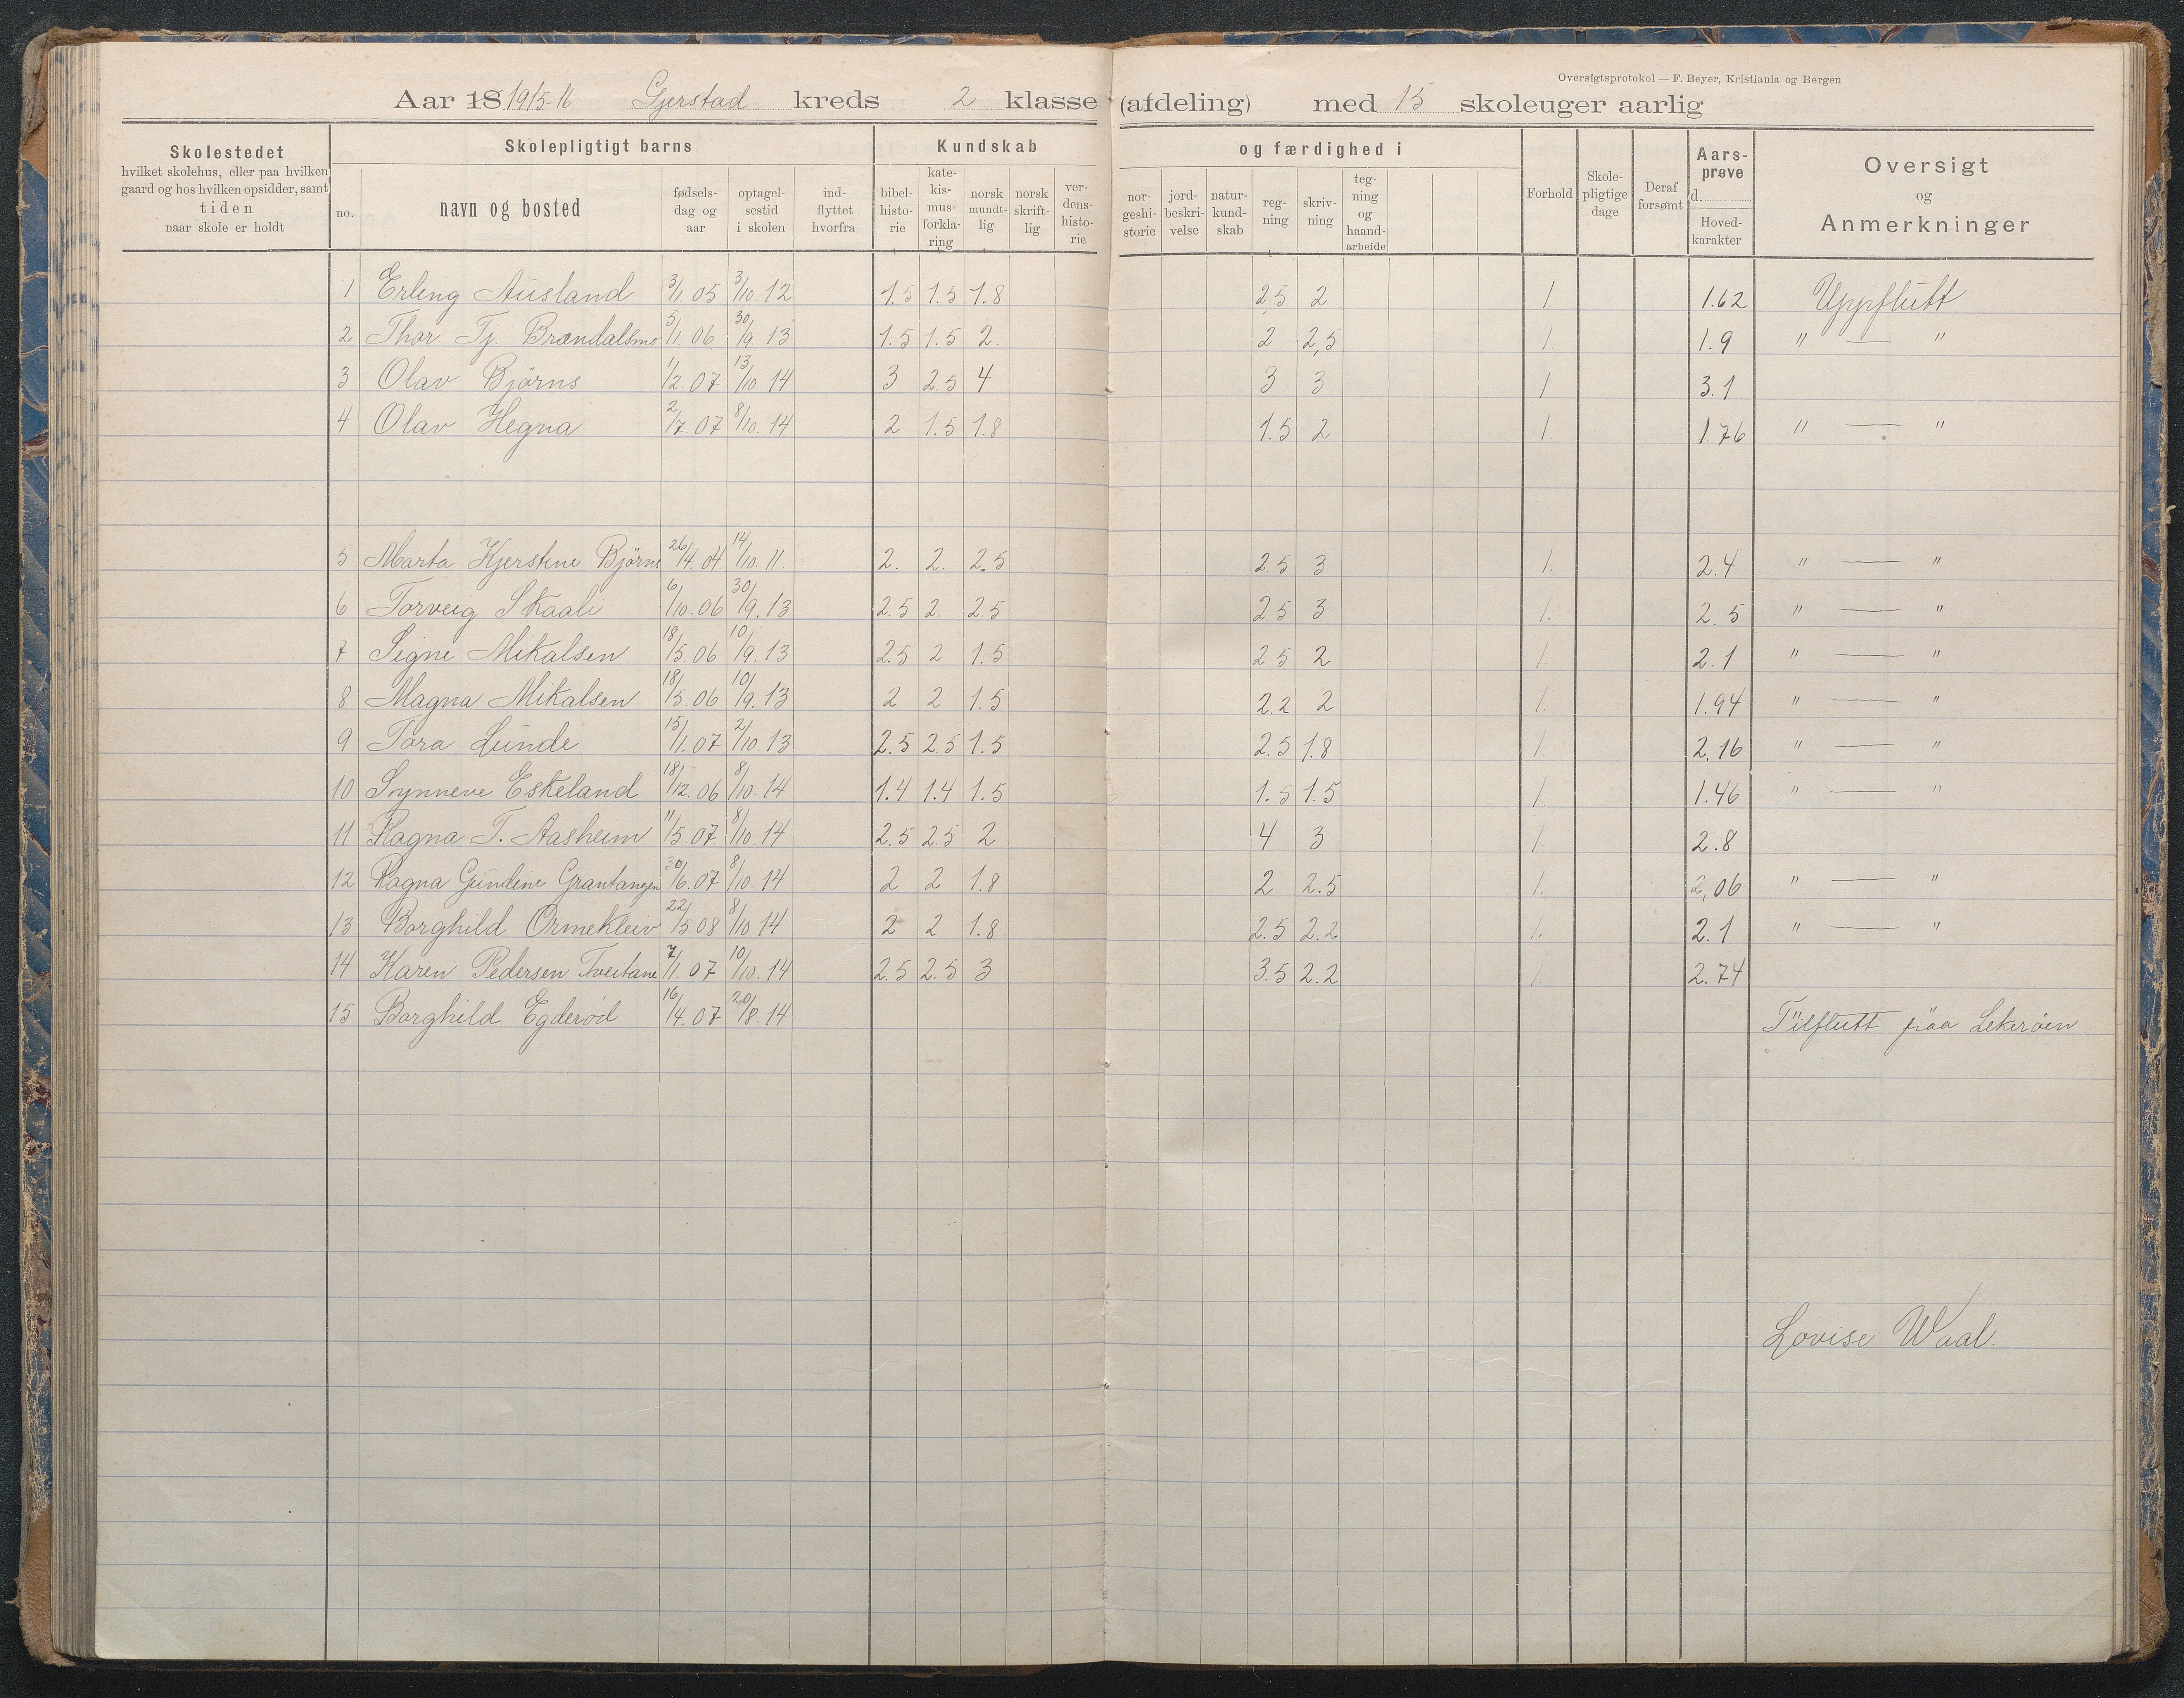 Oversigtsprotokol — F. Beyer, Kristiania og Bergen
Aar 18 1915-16 Gjerstad kreds 2 klasse (afdeling) med 15 skoleuger aarlig
Skolestedet hvilket skolehus, eller paa hvilken gaard og hos hvilken opsidder, samt tiden naar skole er holdt
Skolepligtigt barns
no. navn og bosted fødsels-dag og aar optagel-sestid i skolen ind-flyttet hvorfra
Kundskab og færdighed i
bibel-histo-rie kate-kis-mus-forkla-ring norsk mundt-lig norsk skrift-lig ver-dens-histo-rie nor-geshi-storie jord-beskri-velse natur-kund-skab reg-ning skriv-ning teg-ning og haand-arbeide
Forhold Skole-pligtige dage Deraf forsømt Aars-prøve d. Hoved-karakter
Oversigt og Anmerkninger
1 Erling Ausland 3/1 05 3/10. 12 1.5 1.5 1.8 2.5 2 1 1.62 Uppflutt
2 Thor Tj. Brændalsmo 5/1. 06 30/9. 13 1.5 1.5 2. 2 2,5 1 1.9 " — "
3 Olav Bjørns 1/2 07 13/10. 14 3 2.5 4 3 3 1 3.1
4 Olav Hegna 2/7 07 8/10. 14 2 1.5 1.8 1.5 2 1. 1.76 " — "
5 Marta Kjerstine Bjørns 26/4. 04 14/10. 11 2. 2. 2.5 2.5 3 1. 2.4 " — "
6 Torveig Skaali 6/10. 06 30/9. 13 2.5 2. 2.5 2.5 3 1. 2.5 " — "
7 Signe Mikalsen 18/5. 06 10/9. 13 2.5 2 1.5 2.5 2 1. 2.1 " — "
8 Magna Mikalsen 18/5. 06 10/9. 13 2 2 1.5 2.2 2 1. 1.94 " — "
9 Tora Lunde 15/1. 07 2/10. 13 2.5 2.5 1.5 2.5 1.8 1. 2.16 " — "
10 Synneve Eskeland 18/12. 06 8/10. 14 1.4 1.4 1.5 1.5 1.5 1. 1.46 " — "
11 Ragna T. Aasheim 11/5. 07 8/10. 14 2.5 2.5 2 4 3 1. 2.8
12 Ragna Gundine Grantangen 30/6. 07 8/10. 14 2 2 1.8 2 2.5 1. 2,06 " — "
13 Borghild Ormekleiv 22/5 08 8/10 14 2 2 1.8 2.5 2.2 1. 2.1 " — "
14 Karen Pedersen Tveitane 7/1. 07 10/10. 14 2.5 2.5 3 3.5 2.2 1. 2.74
15 Borghild Egderød 16/4. 07 20/8. 14 Tilflutt paa Lekerøen
Lovise Waal.